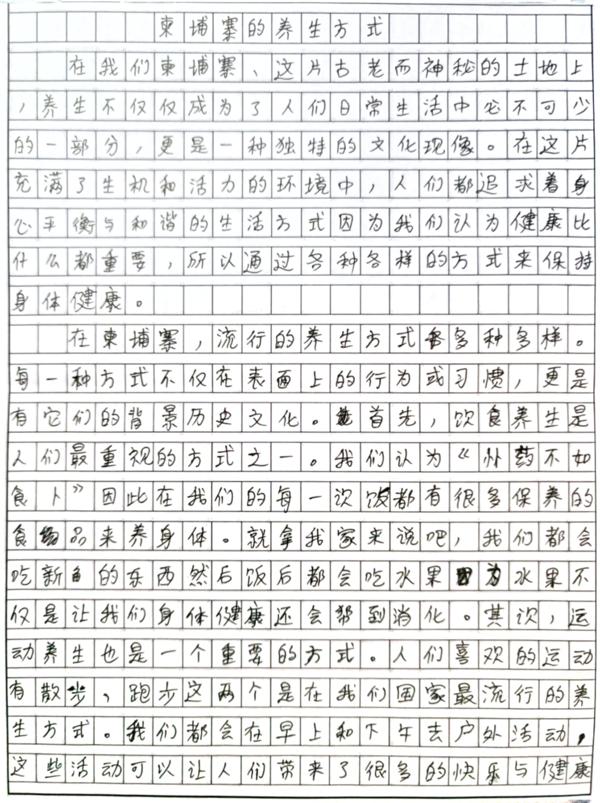 柬埔寨的养生方式
在我们柬埔寨、这片古老而神秘的土地上
，养生不仅仅成为了人们日常生活中必不可少
的一部分，更是一种独特的文化现像。在这片
充满了生机和活力的环境中，人们都追求着身
心平衡与和谐的生活方式因为我们认为健康比
什么都重要，所以通过各种各样的方式来保持
身体健康。
在柬埔寨，流行的养生方式多种多样。
每一种方式不仅在表面上的行为或习惯，更是
有它们的背景历史文化。首先，饮食养生是
人们最重视的方式之一。我们认为“补药不如
食卜”因此在我们的每一次饭都有很多保养的
食品来养身体。就拿我家来说吧，我们都会
吃新的东西然后饭后都会吃水果因为水果不
仅是让我们身体健康还会帮到消化。其次，运
动养生也是一个重要的方式。人们喜欢的运动
有散步，跑步这两个是在我们国家最流行的养
生方式。我们都会在早上和下午去户外活动，
这些活动可以让人们带来了很多的快乐与健康